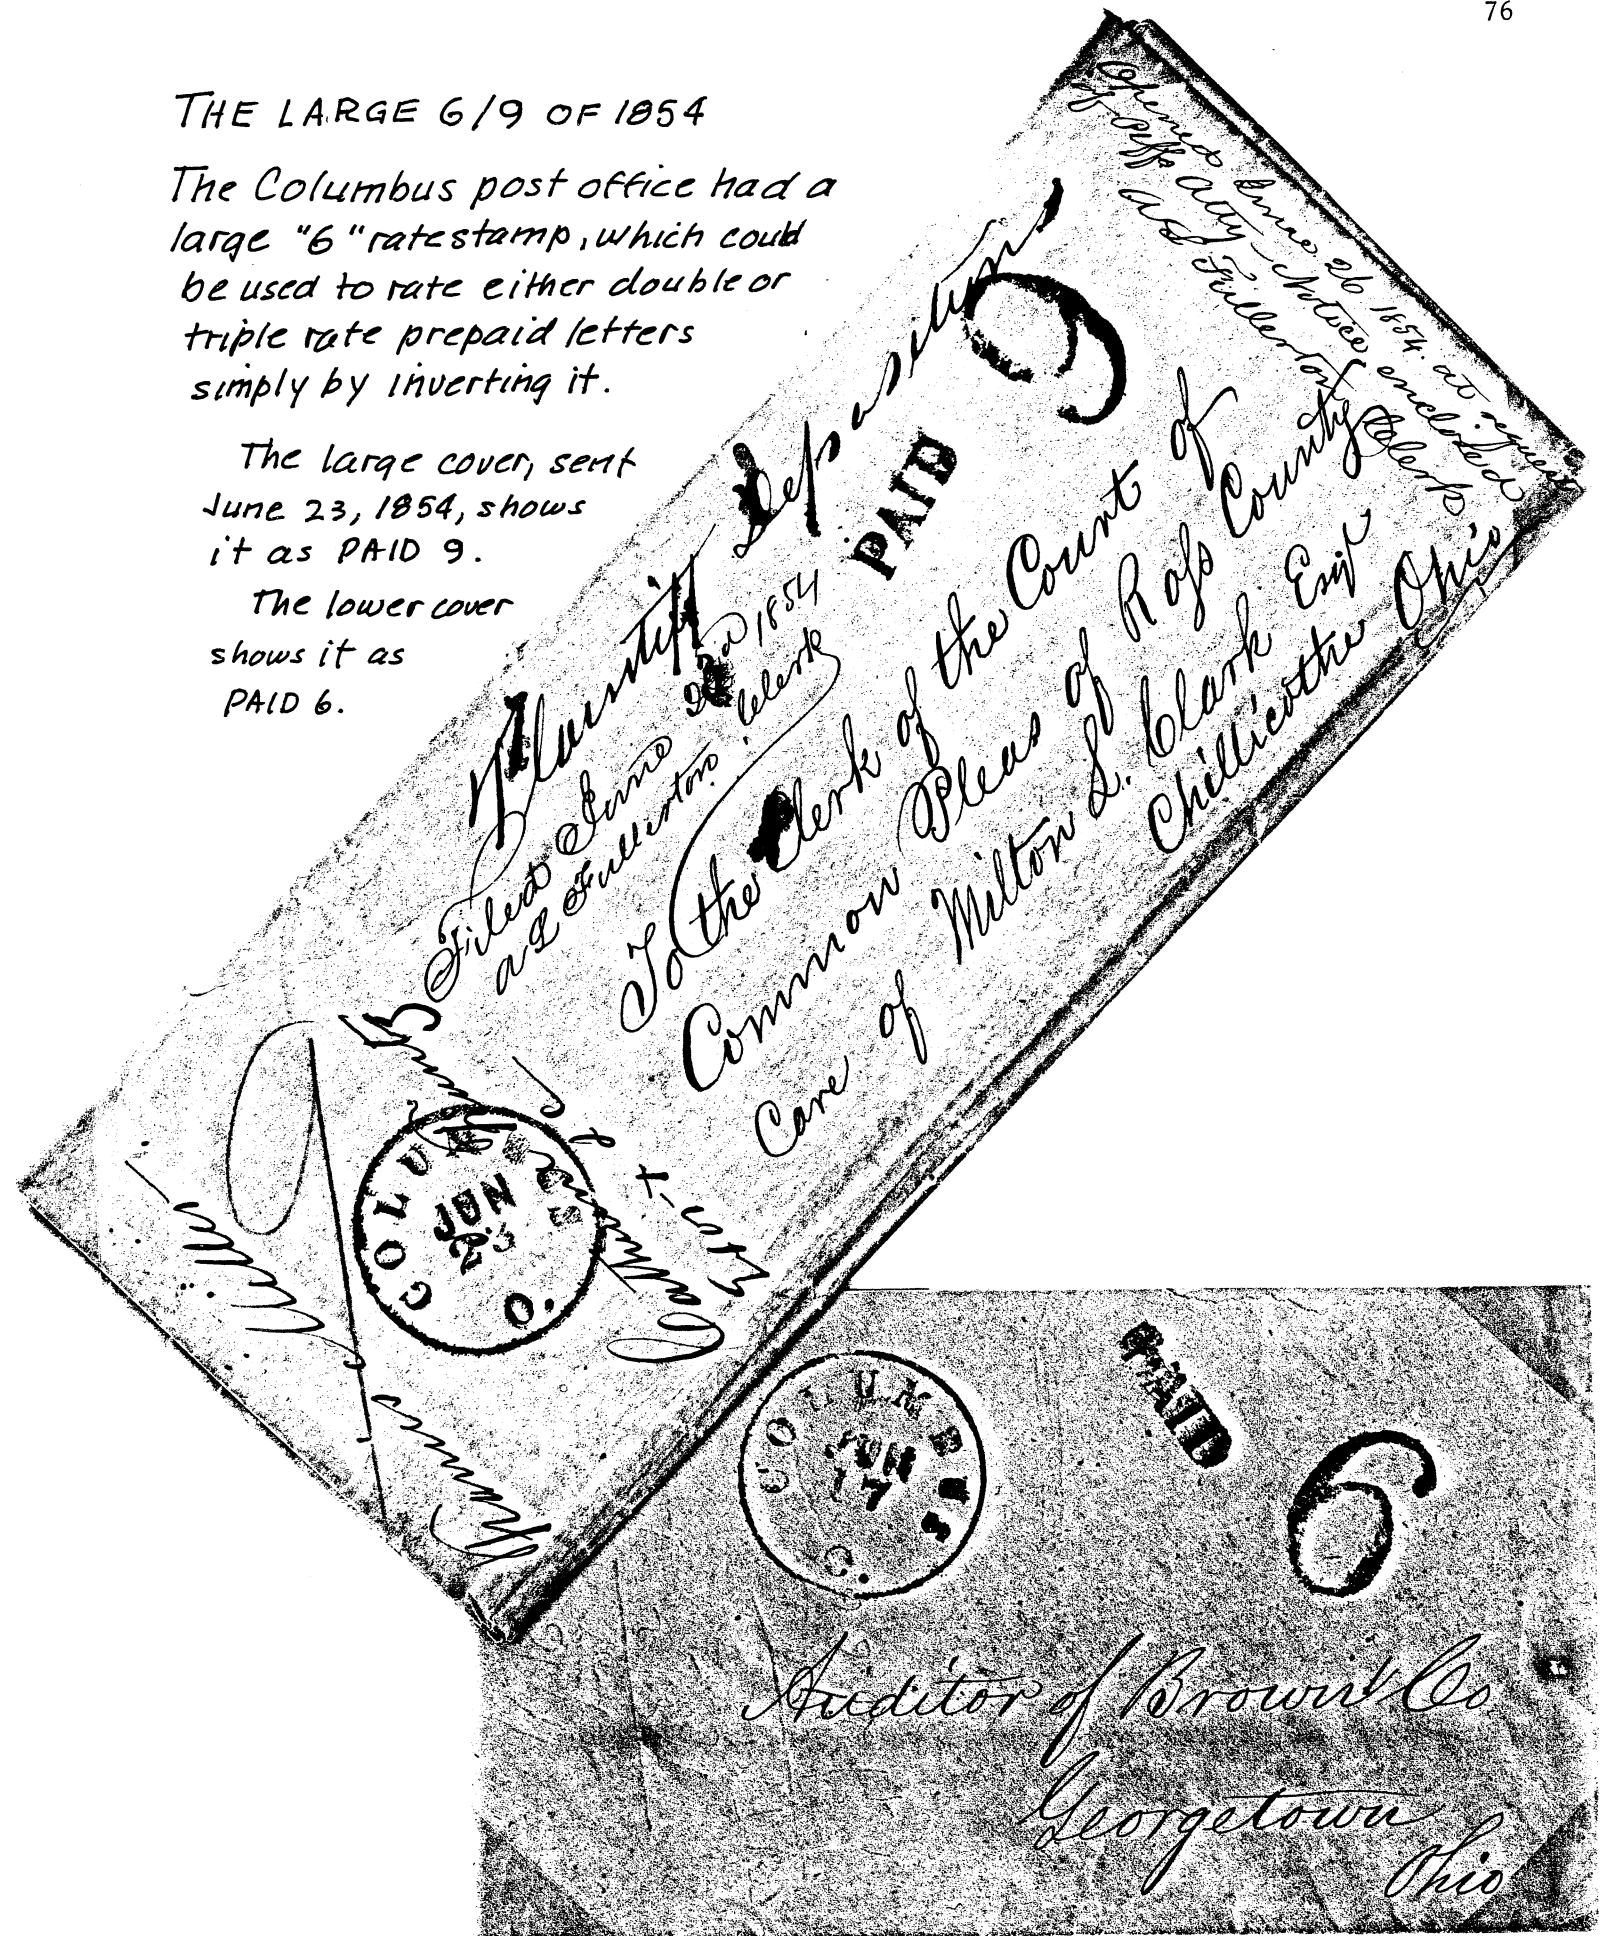 76
THE LARGE 6/9 OF 1854
The Columbus post office had a
large "6" rate stamp, which could
be used to rate either double or
triple rate prepaid letters
simply by inverting it.
The large cover, sent
June 23, 1854, shows
it as PAID 9.
The lower cover
shows it as
PAID 6.
Opened June 26 1854. at request
of Plffs Atty - Notice enclosed
ALS Fullerton Clerk
Plaintiff Depositions
9
PAID
Filed June 1854
A L Fullerton Clerk
To the Clerk of the Court of
Common Pleas of Ross County
Care of Milton L. Clark Esqr
Chillicothe Ohio
COLUMBUS
JUN
23
O.
COLUMBUS
JUN
17
O.
PAID
6
Auditor of Brown Co
Georgetown
Ohio